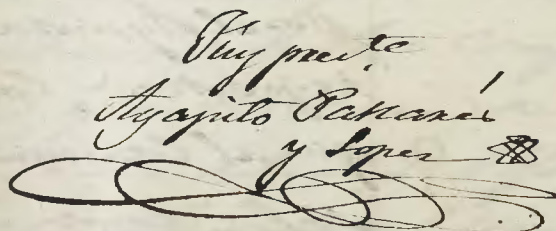 Fuy pres.te
Agapito Pallarés
y Lopez